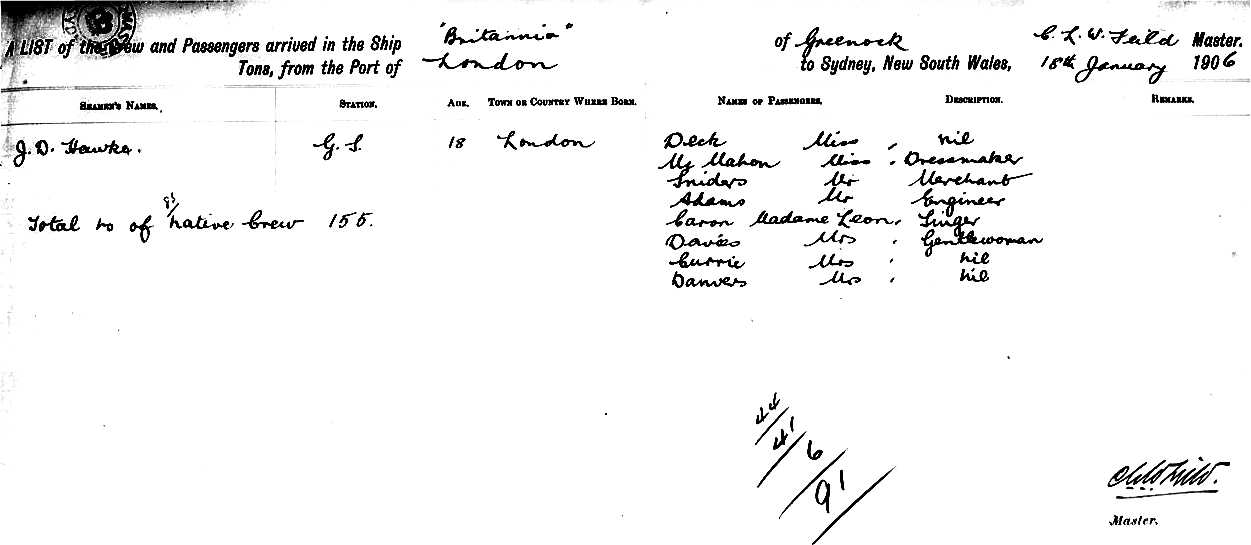 A LIST of the Crew and Passengers arrived in the Ship "Britannia" of Greenock C. L. W. Feild Master.
Tons, from the Port of London to Sydney, New South Wales, 18th January 1906
SEAMEN'S NAMES. STATION. AGE. TOWN OR COUNTRY WHERE BORN. NAMES OF PASSENGERS. DESCRIPTION. REMARKS.
J. D. Hawke. G. S. 18 London
Total no of native crew 155.
Deck Miss nil
Mc Mahon Miss Dressmaker
Sniders Mr Merchant
Adams Mr Engineer
Caron Madame Leon, Singer
Davies Mrs Gentlewoman
Currie Mrs nil
Danvers Mrs nil
44
41
6
91
Master.